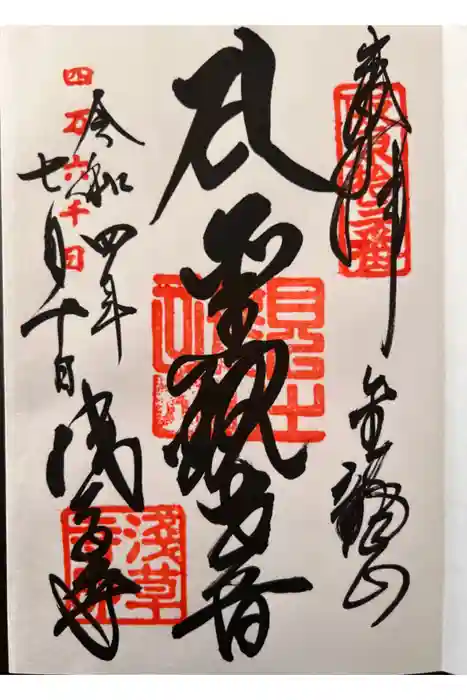 奉拝
坂東拾三番
金龍山
聖観世音
四万六千日
令和四年
七月十日
浅草寺
淺草